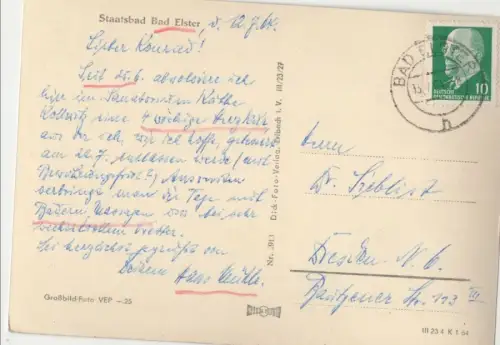 Staatsbad Bad Elster, d. 12.7.64.
Lieber Konrad!
Seit 25.6. absolviere ich
hier im Sanatorium Käthe
Kollwitz eine 4 wöchige Herzkur
aus der ich, wie ich hoffe, gebessert
am 22.7. entlassen werde (mit
Bewährungsfrist!) Ansonsten
verbringt man die Tage mit
Bädern, Massagen, usw. bei sehr
wechselvollem Wetter.
Sei herzlichst gegrüßt von
Deinem Hans
Großbild-Foto VEP - 25
Nr. Dick-Foto-Verlag, Erlbach i. V. III/23/29
BAD ELSTER
h
10
DEUTSCHE
DEMOKRATISCHE REPUBLIK
Herrn
Dr.
Dresden N. 6.
Bautzener Str. 113 III
III 23 4 K 1 64